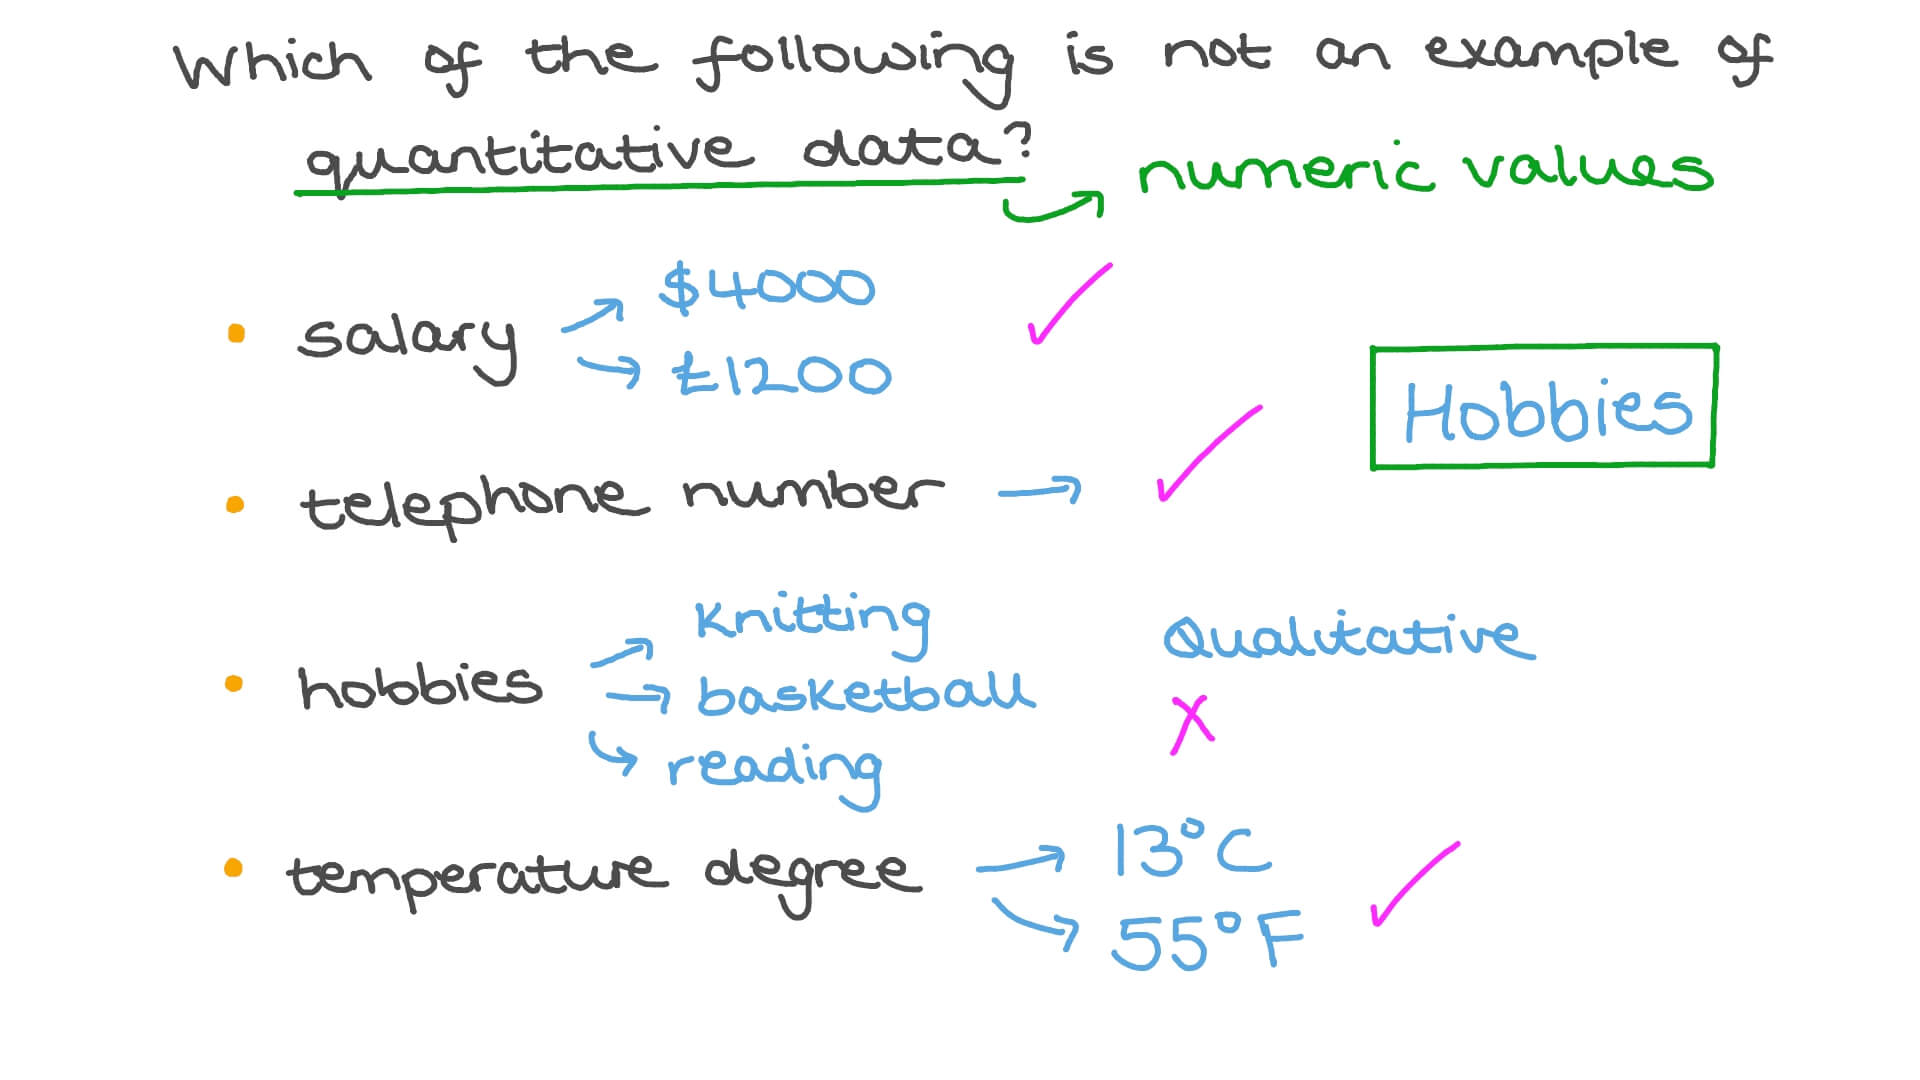 Which of the following is not an example of
quantitative data?
numeric values
• salary
$4000
£1200
Hobbies
• telephone number
• hobbies
Knitting
basketball
reading
Qualitative
• temperature degree
13°C
55°F